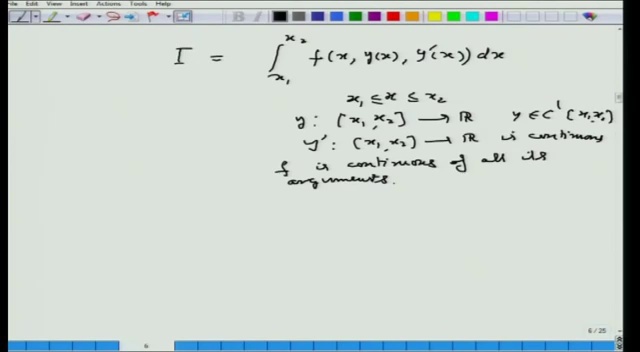 File Edit View Insert Actions Tools Help
I = ∫_{x₁}^{x₂} f(x, y(x), y'(x)) dx
x₁ ≤ x ≤ x₂
y : [x₁, x₂] → ℝ y ∈ C¹ [x₁, x₂]
y' : [x₁, x₂] → ℝ is continous
f is continous of all its
arguments.
6 / 25
6